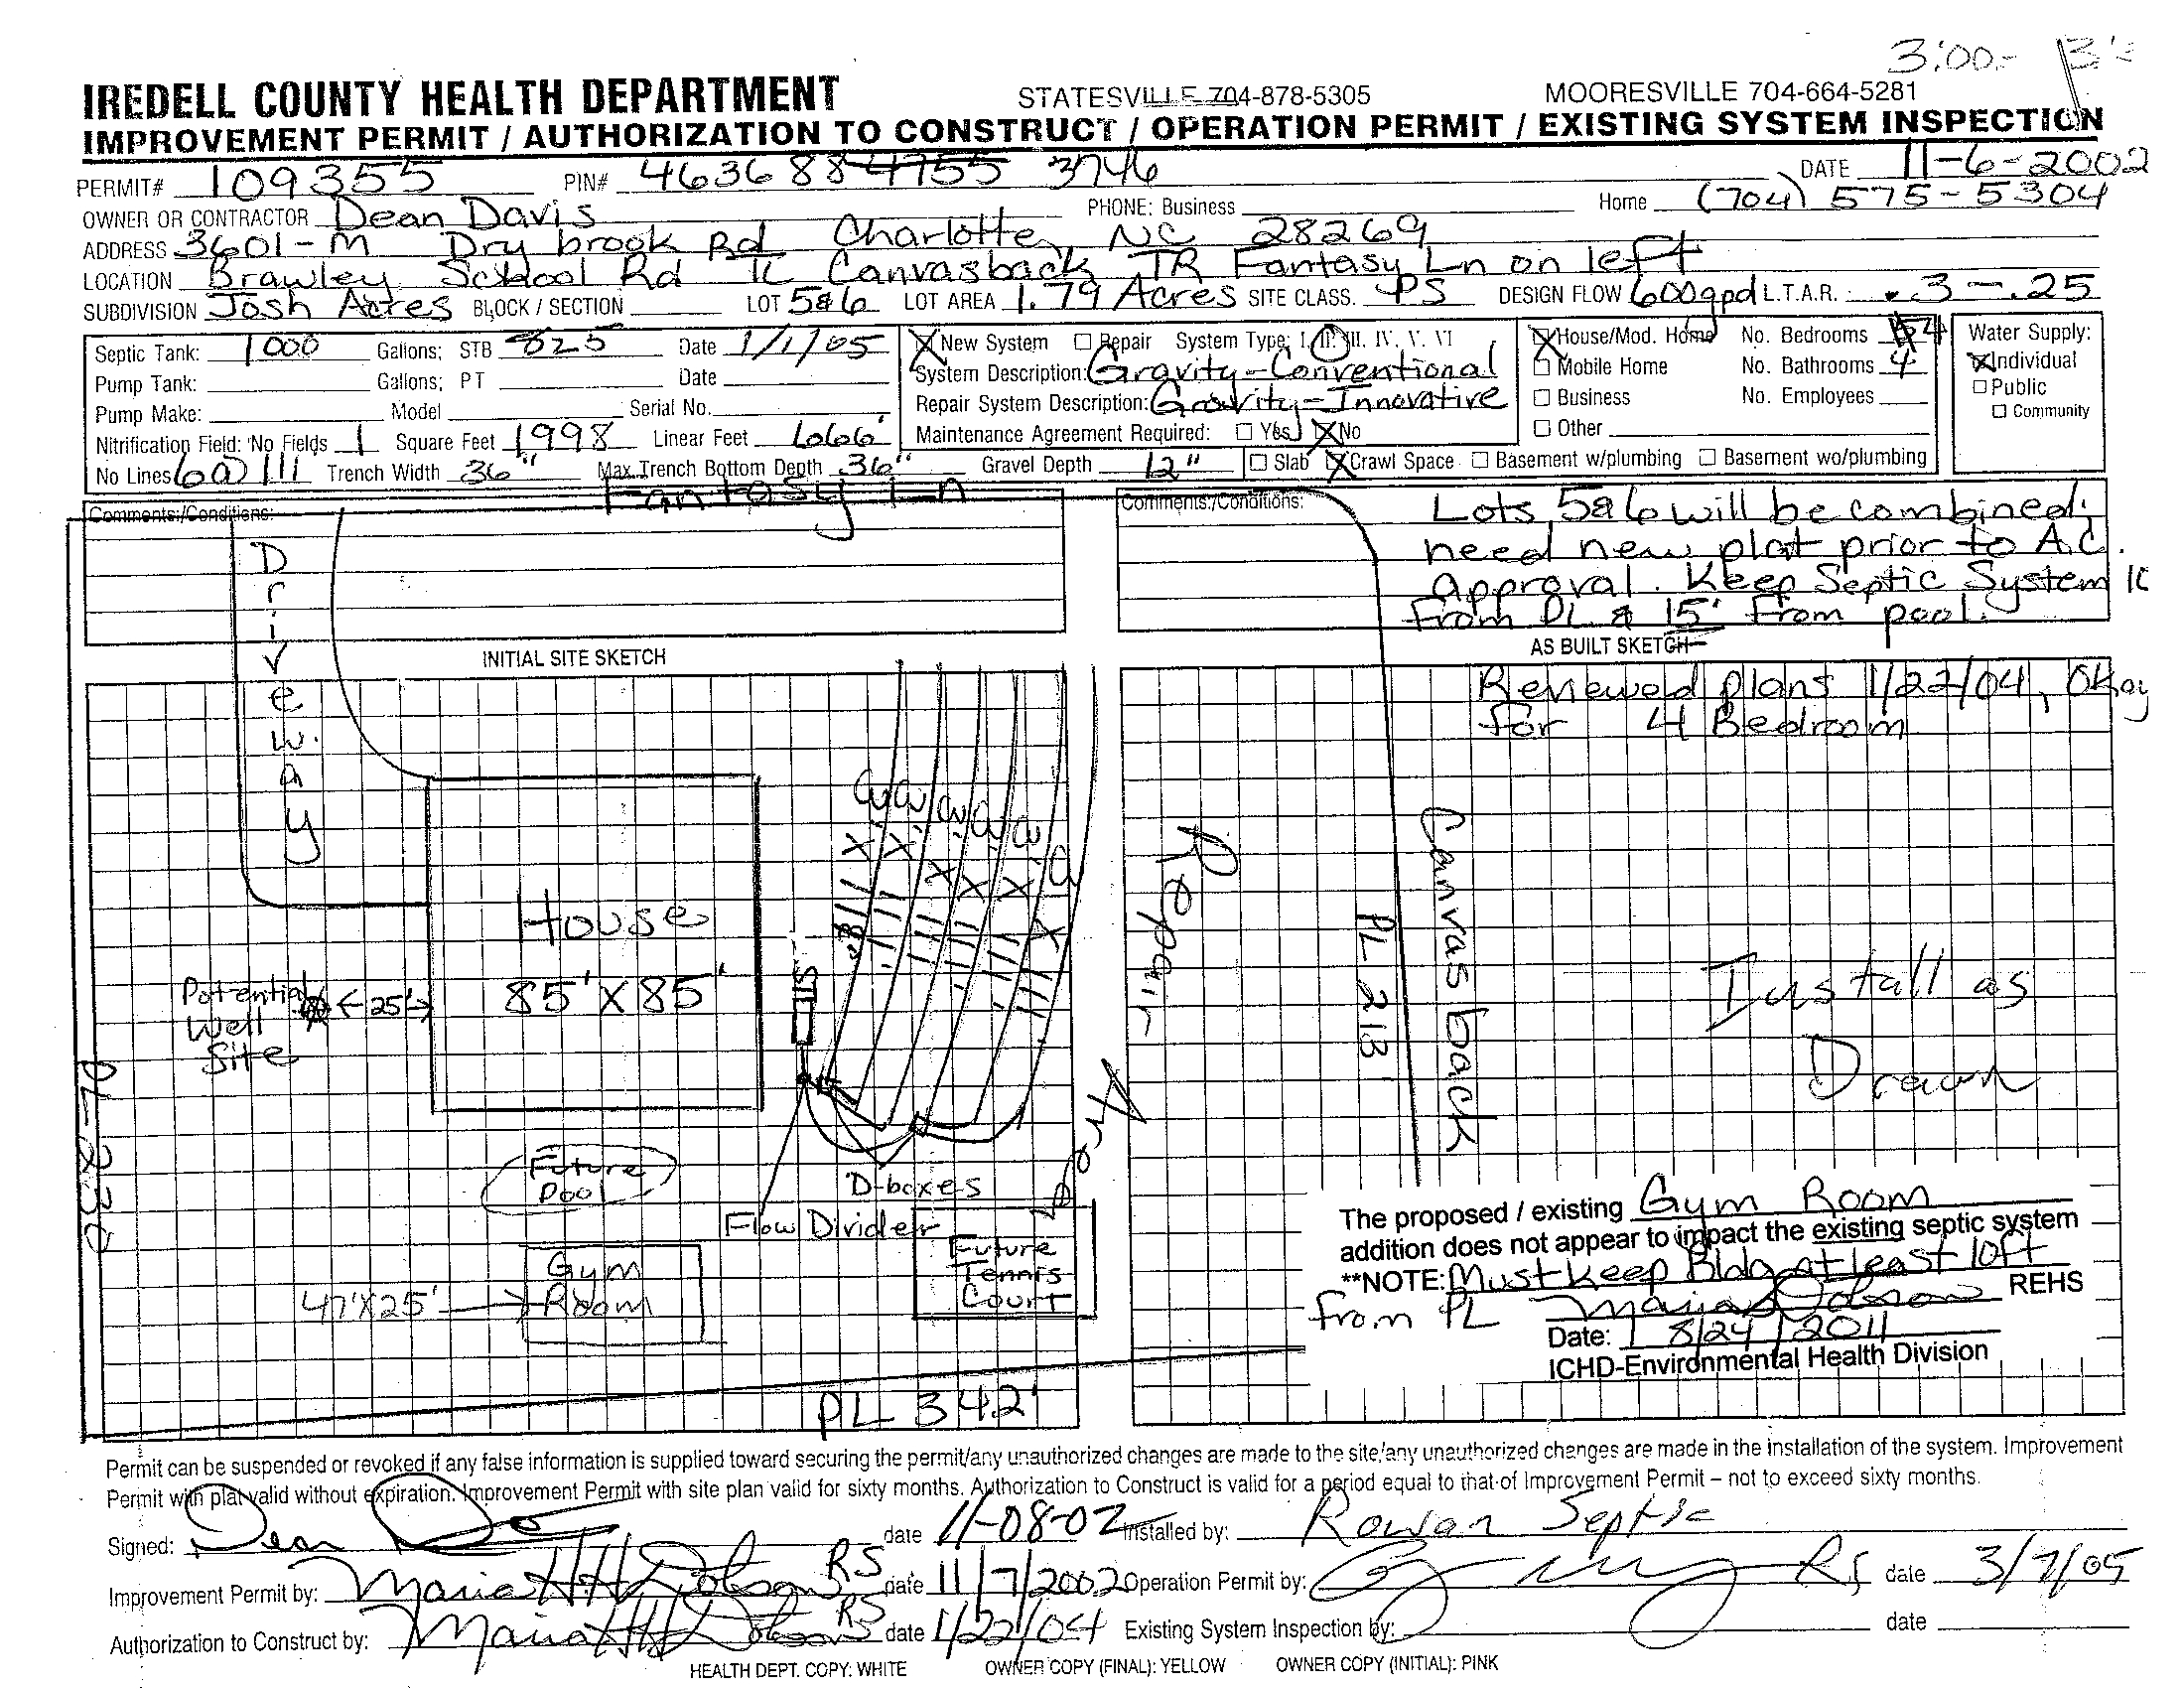 3:00-
IREDELL COUNTY HEALTH DEPARTMENT STATESVILLE 704-878-5305 MOORESVILLE 704-664-5281
IMPROVEMENT PERMIT / AUTHORIZATION TO CONSTRUCT / OPERATION PERMIT / EXISTING SYSTEM INSPECTION
PERMIT# 109355 PIN# 4636 88 4755 3746 DATE 11-6-2002
OWNER OR CONTRACTOR Dean Davis PHONE: Business Home (704) 575-5304
ADDRESS 3601-M Dry brook Rd Charlotte, NC 28269
LOCATION Brawley School Rd TL Canvasback TR Fantasy Ln on left
SUBDIVISION Josh Acres BLOCK / SECTION LOT 5&6 LOT AREA 1.79 Acres SITE CLASS. PS DESIGN FLOW 600gpd L.T.A.R. .3-.25
Septic Tank: 1000 Gallons; STB 825 Date 1/1/05
Pump Tank: Gallons; PT Date
Pump Make: Model Serial No.
Nitrification Field: No Fields 1 Square Feet 1998 Linear Feet 666'
No Lines 6@111 Trench Width 36" Max. Trench Bottom Depth 36" Gravel Depth 12"
New System Repair System Type: I. II. III. IV. V. VI
System Description: Gravity-Conventional
Repair System Description: Gravity-Innovative
Maintenance Agreement Required: Yes No
Slab Crawl Space Basement w/plumbing Basement wo/plumbing
House/Mod. Home No. Bedrooms 4
Mobile Home No. Bathrooms 4
Business No. Employees
Other
Water Supply:
Individual
Public
Community
Fantasy Ln
Comments:/Conditions:
Comments:/Conditions: Lots 5&6 will be combined.
need new plat prior to A.C.
approval. Keep Septic System 10
from PL & 15' from pool.
INITIAL SITE SKETCH
AS BUILT SKETCH
Driveway
Reviewed plans 1/22/04, Okay
for 4 Bedroom
House
85' X 85'
Potential
Well
Site
25'
Repair
Area
PL 213'
Canvasback
Install as
Drawn
PL 230
Future
Pool
D-boxes
Flow Divider
Future
Tennis
Court
Gym
Room
47'X25'
PL 342'
The proposed / existing Gym Room
addition does not appear to impact the existing septic system
**NOTE: Must keep Bldg at least 10ft
from PL Maria Dobson REHS
Date: 8/24/2011
ICHD-Environmental Health Division
Permit can be suspended or revoked if any false information is supplied toward securing the permit/any unauthorized changes are made to the site/any unauthorized changes are made in the installation of the system. Improvement
Permit with plat valid without expiration. Improvement Permit with site plan valid for sixty months. Authorization to Construct is valid for a period equal to that of Improvement Permit – not to exceed sixty months.
Signed: Dean date 11-08-02 Installed by: Rowan Septic
Improvement Permit by: Maria HH Dobson RS date 11/7/2002 Operation Permit by: RS date 3/7/05
Authorization to Construct by: Maria HH Dobson RS date 1/22/04 Existing System Inspection by: date
HEALTH DEPT. COPY: WHITE OWNER COPY (FINAL): YELLOW OWNER COPY (INITIAL): PINK